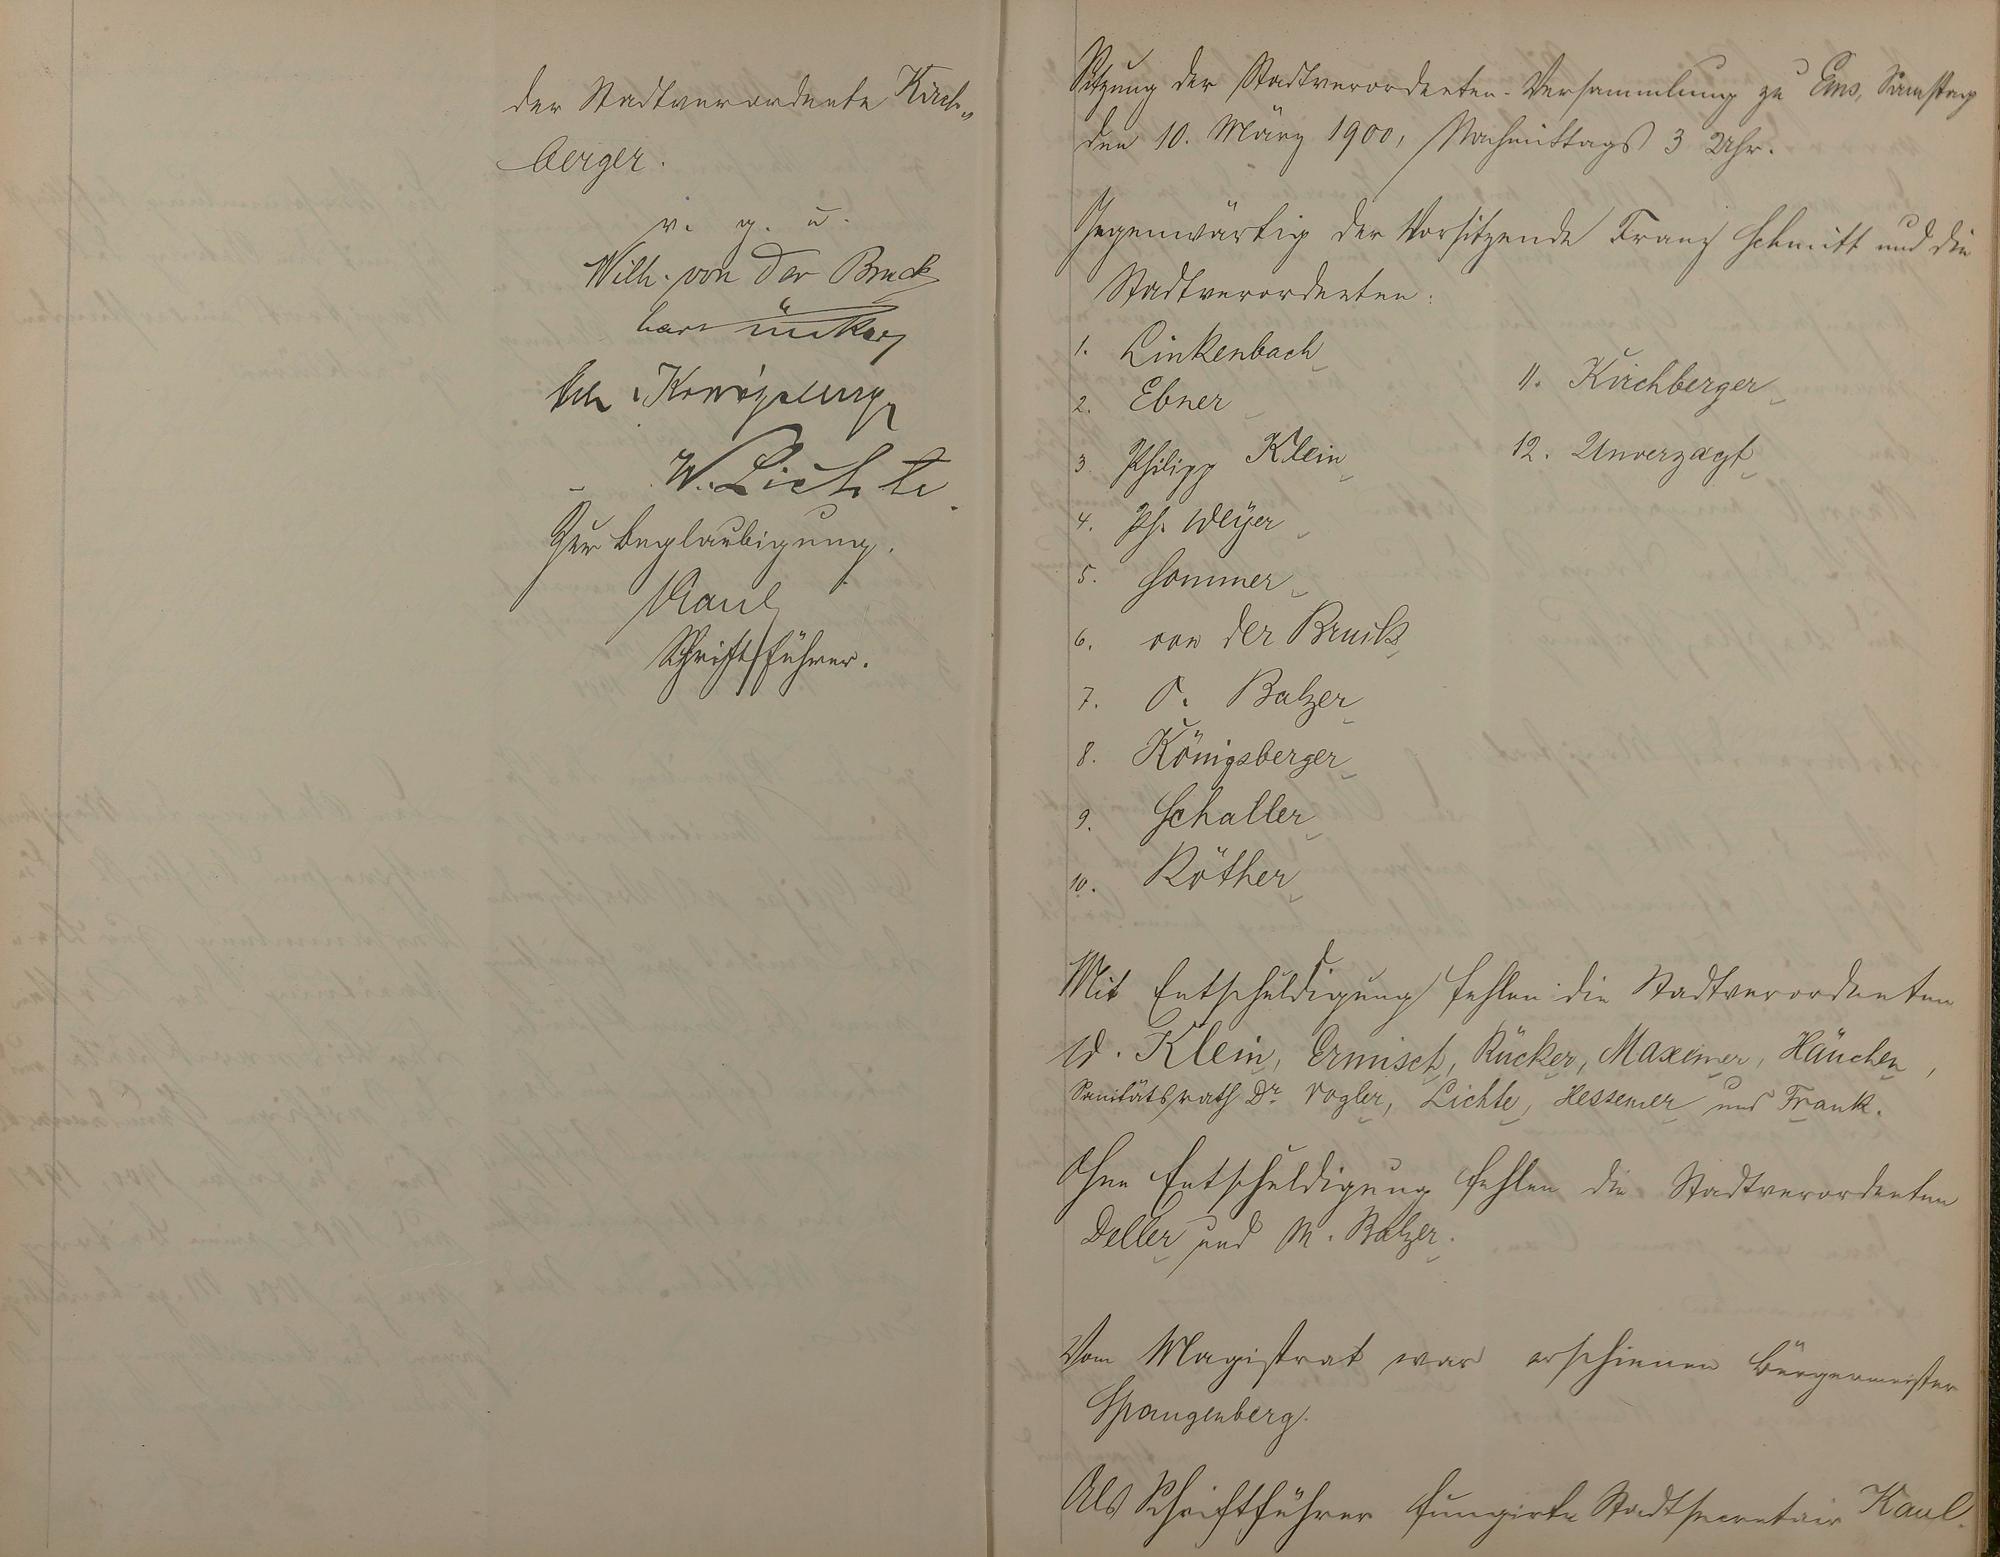 der Stadtverordnete Kirch-
berger.
v. g. u.
Wilh. von der Bruck
W. Lichte
Zur Beglaubigung.
Kaul
Schriftführer.
Sitzung der Stadtverordneten-Versammlung zu Ems, Samstag
den 10. März 1900, Nachmittags 3 Uhr.
Gegenwärtig der Vorsitzende Franz Schmitt und die
Stadtverordneten:
1. Linkenbach
2. Ebner
3. Philipp Klein
4. Ph. Weyer
5. Sommer
6. von der Bruck
7. O. Balzer
8. Königsberger
9. Schaller
10. Röther
11. Kirchberger
12. Unverzagt
Mit Entschuldigung fehlen die Stadtverordneten
W. Klein, Ermisch, Rücker, Maxeiner, Häuchen,
Sanitätsrath Dr. Vogler, Lichte, Hessemer und Frank.
Ohne Entschuldigung fehlen die Stadtverordneten
Deller und M. Balzer.
Vom Magistrat war erschienen Bürgermeister
Spangenberg.
Als Schriftführer fungirte Stadtsecretair Kaul.